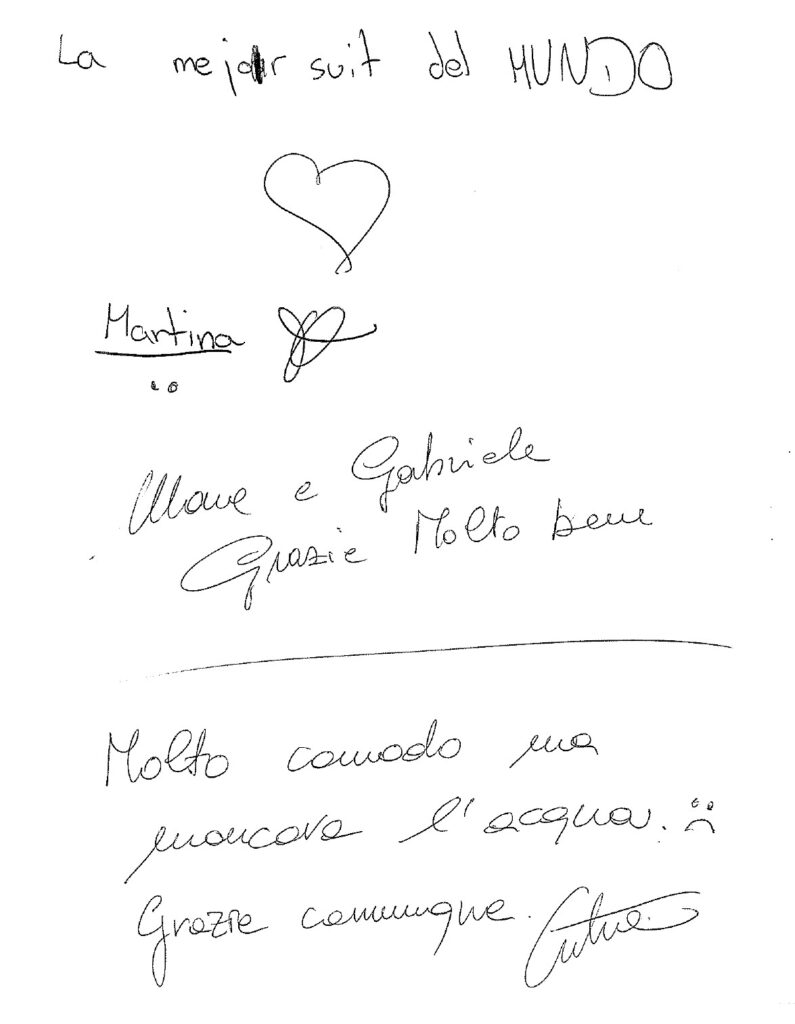 La mejor suit del MUNDO
Martina
e Gabriele
Grazie Molto bene
Molto comodo ma
mancava l'acqua. :(
Grazie comunque.